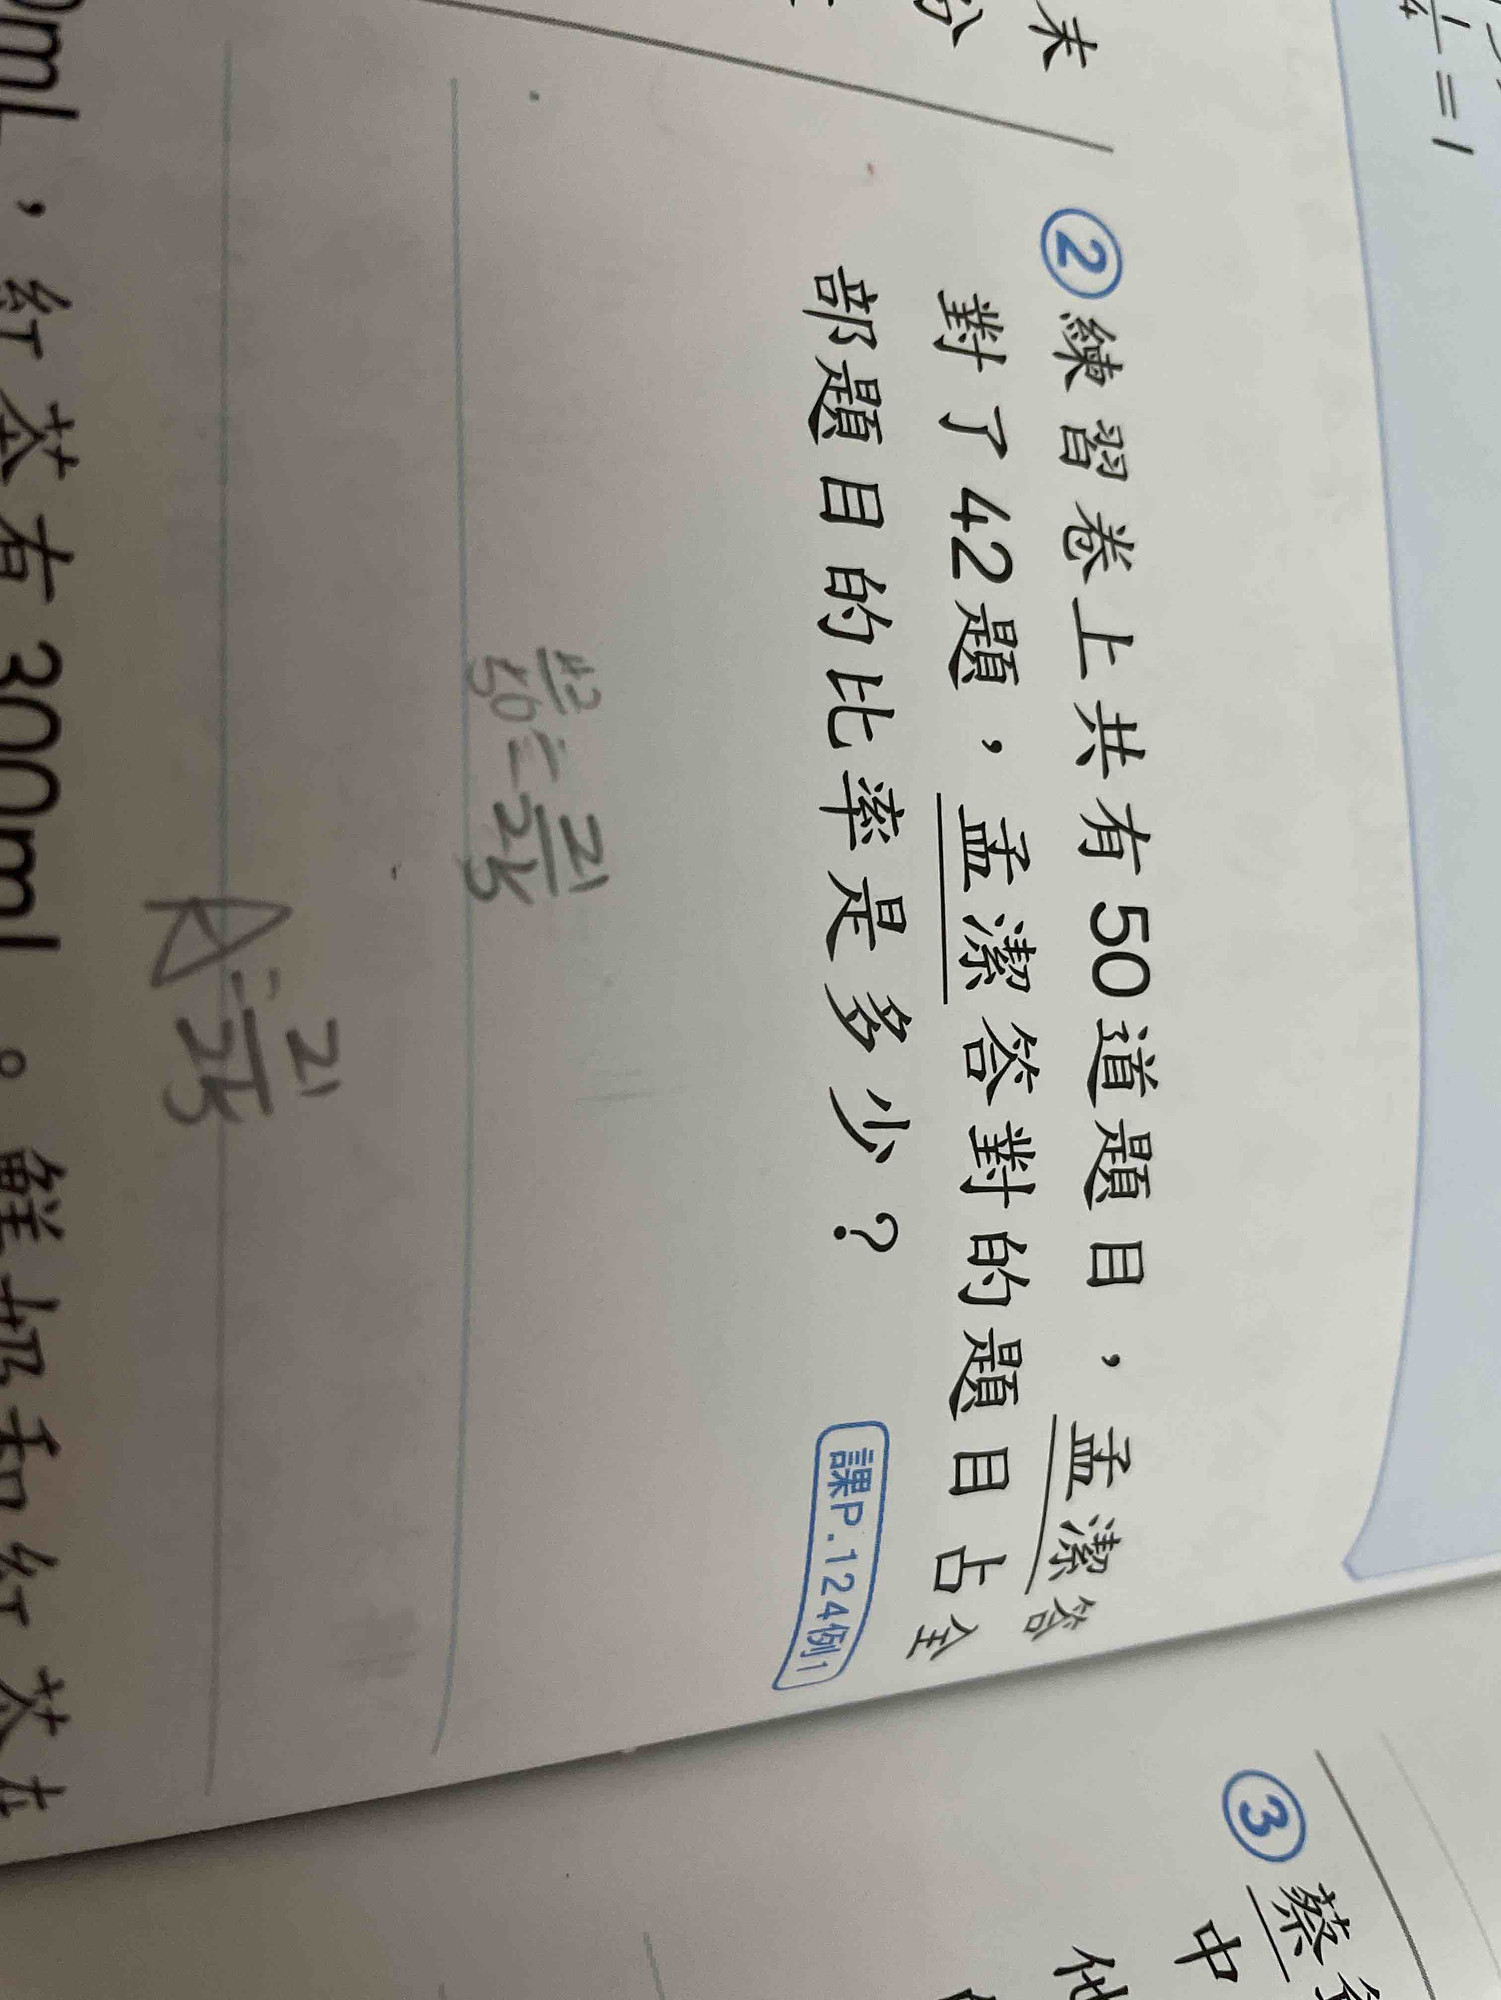 未
分
1/4 = 1
② 練習卷上共有50道題目，孟潔答
對了42題，孟潔答對的題目占全
部題目的比率是多少？
課P.124例1
42/50 = 21/25
A: 21/25
0mL，紅茶有300mL。鮮奶和紅茶在
③ 蔡
中
他